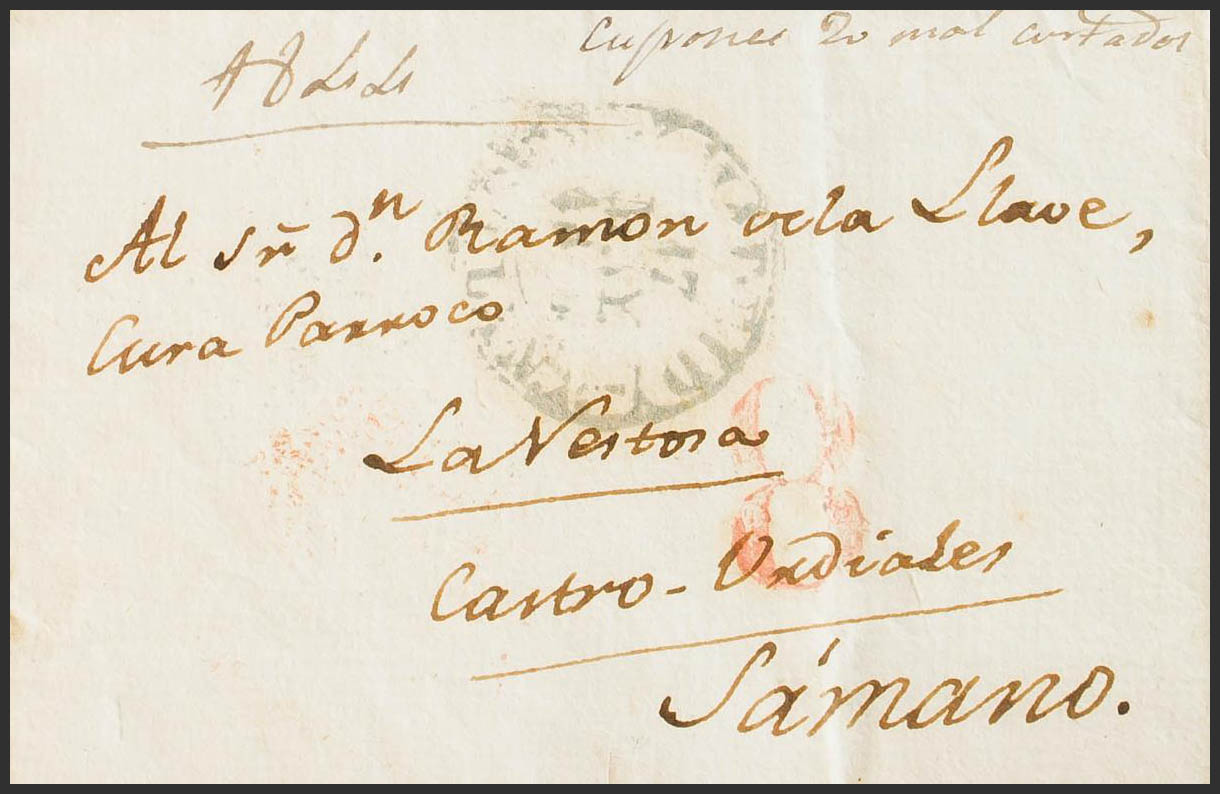 Cupones 20 mal cortados
Al Sr. Dn. Ramon de la Llave,
Cura Parroco
La Nestosa
Castro-Urdiales
Sámano.
8